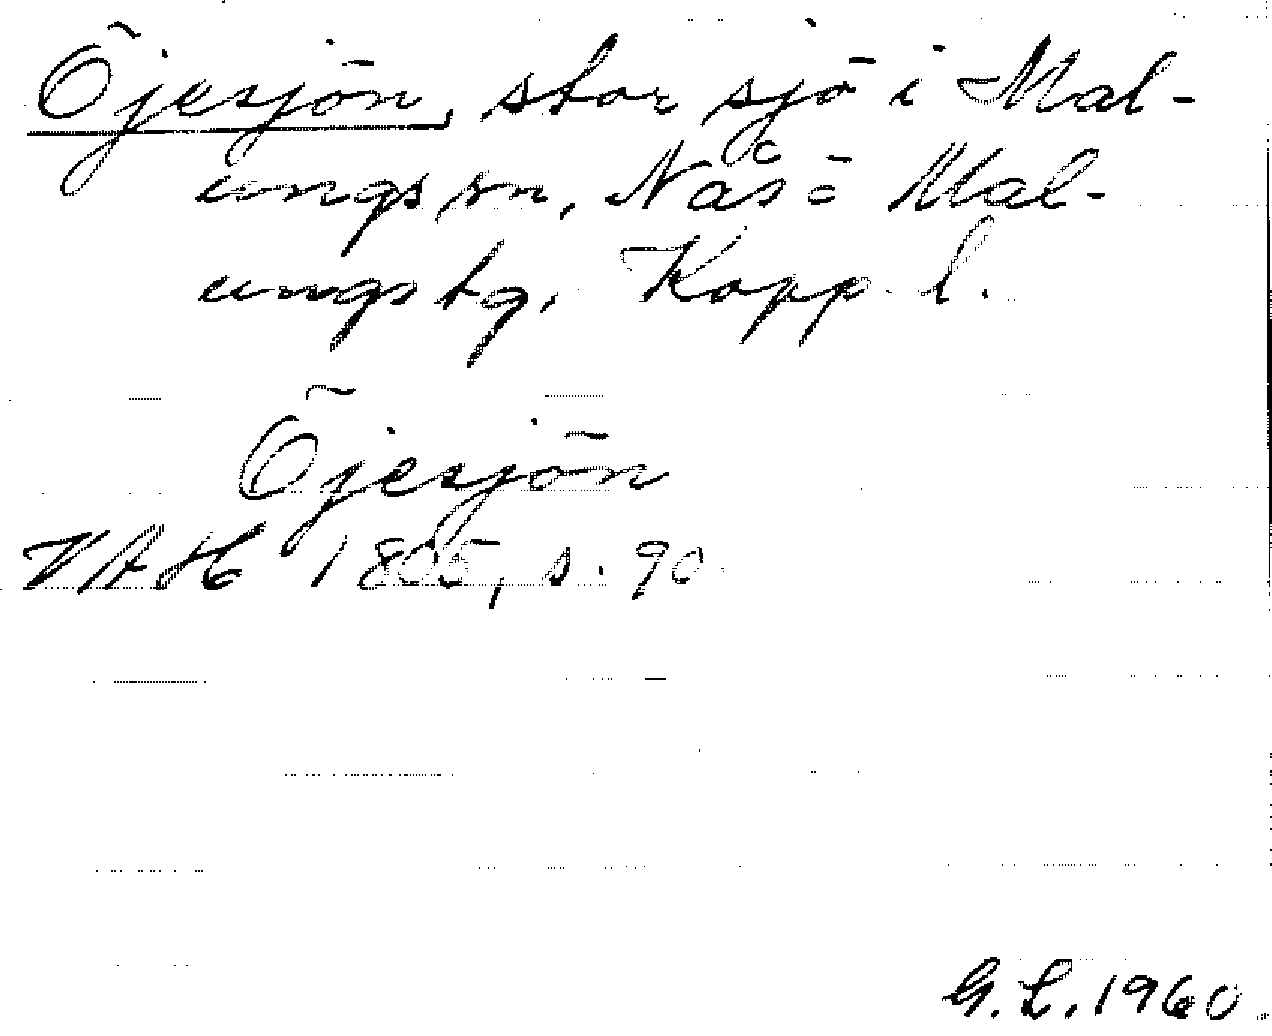 Öjesjön, stor sjö i Mal-
ungs sn, Nås o Mal-
ungs tg, Kopp. l.
Öjesjön
VAH 1805, s. 90.
G. L. 1960.